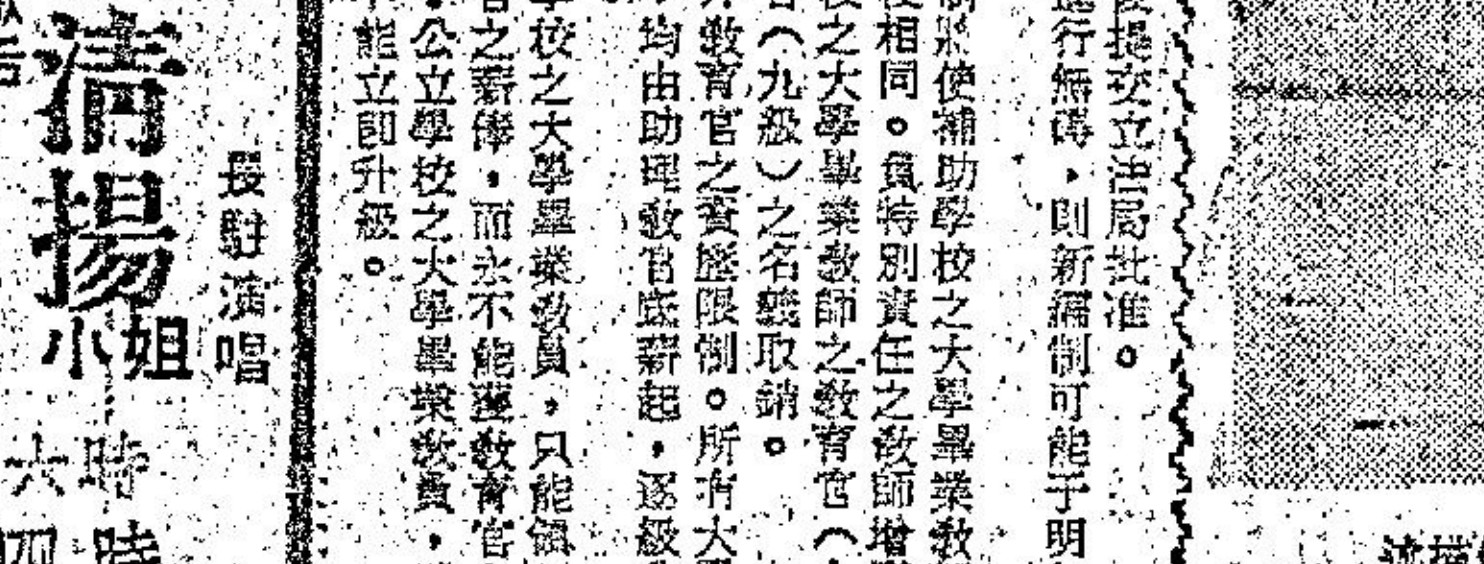 提交立法局批准。
行無碍，則新編制可能于明
將使補助學校之大學畢業教
相同。負特別責任之教師增
之大學畢業教師之教育官（
（九級）之名義取銷。
教育官之資歷限制。所有大
均由助理教官底薪起，逐級
學校之大學畢業教員，只能領
之薪俸，而永不能獲教育官
公立學校之大學畢業教員，
能立即升級。
長駐演唱
清揚
小姐
時
六
時
四